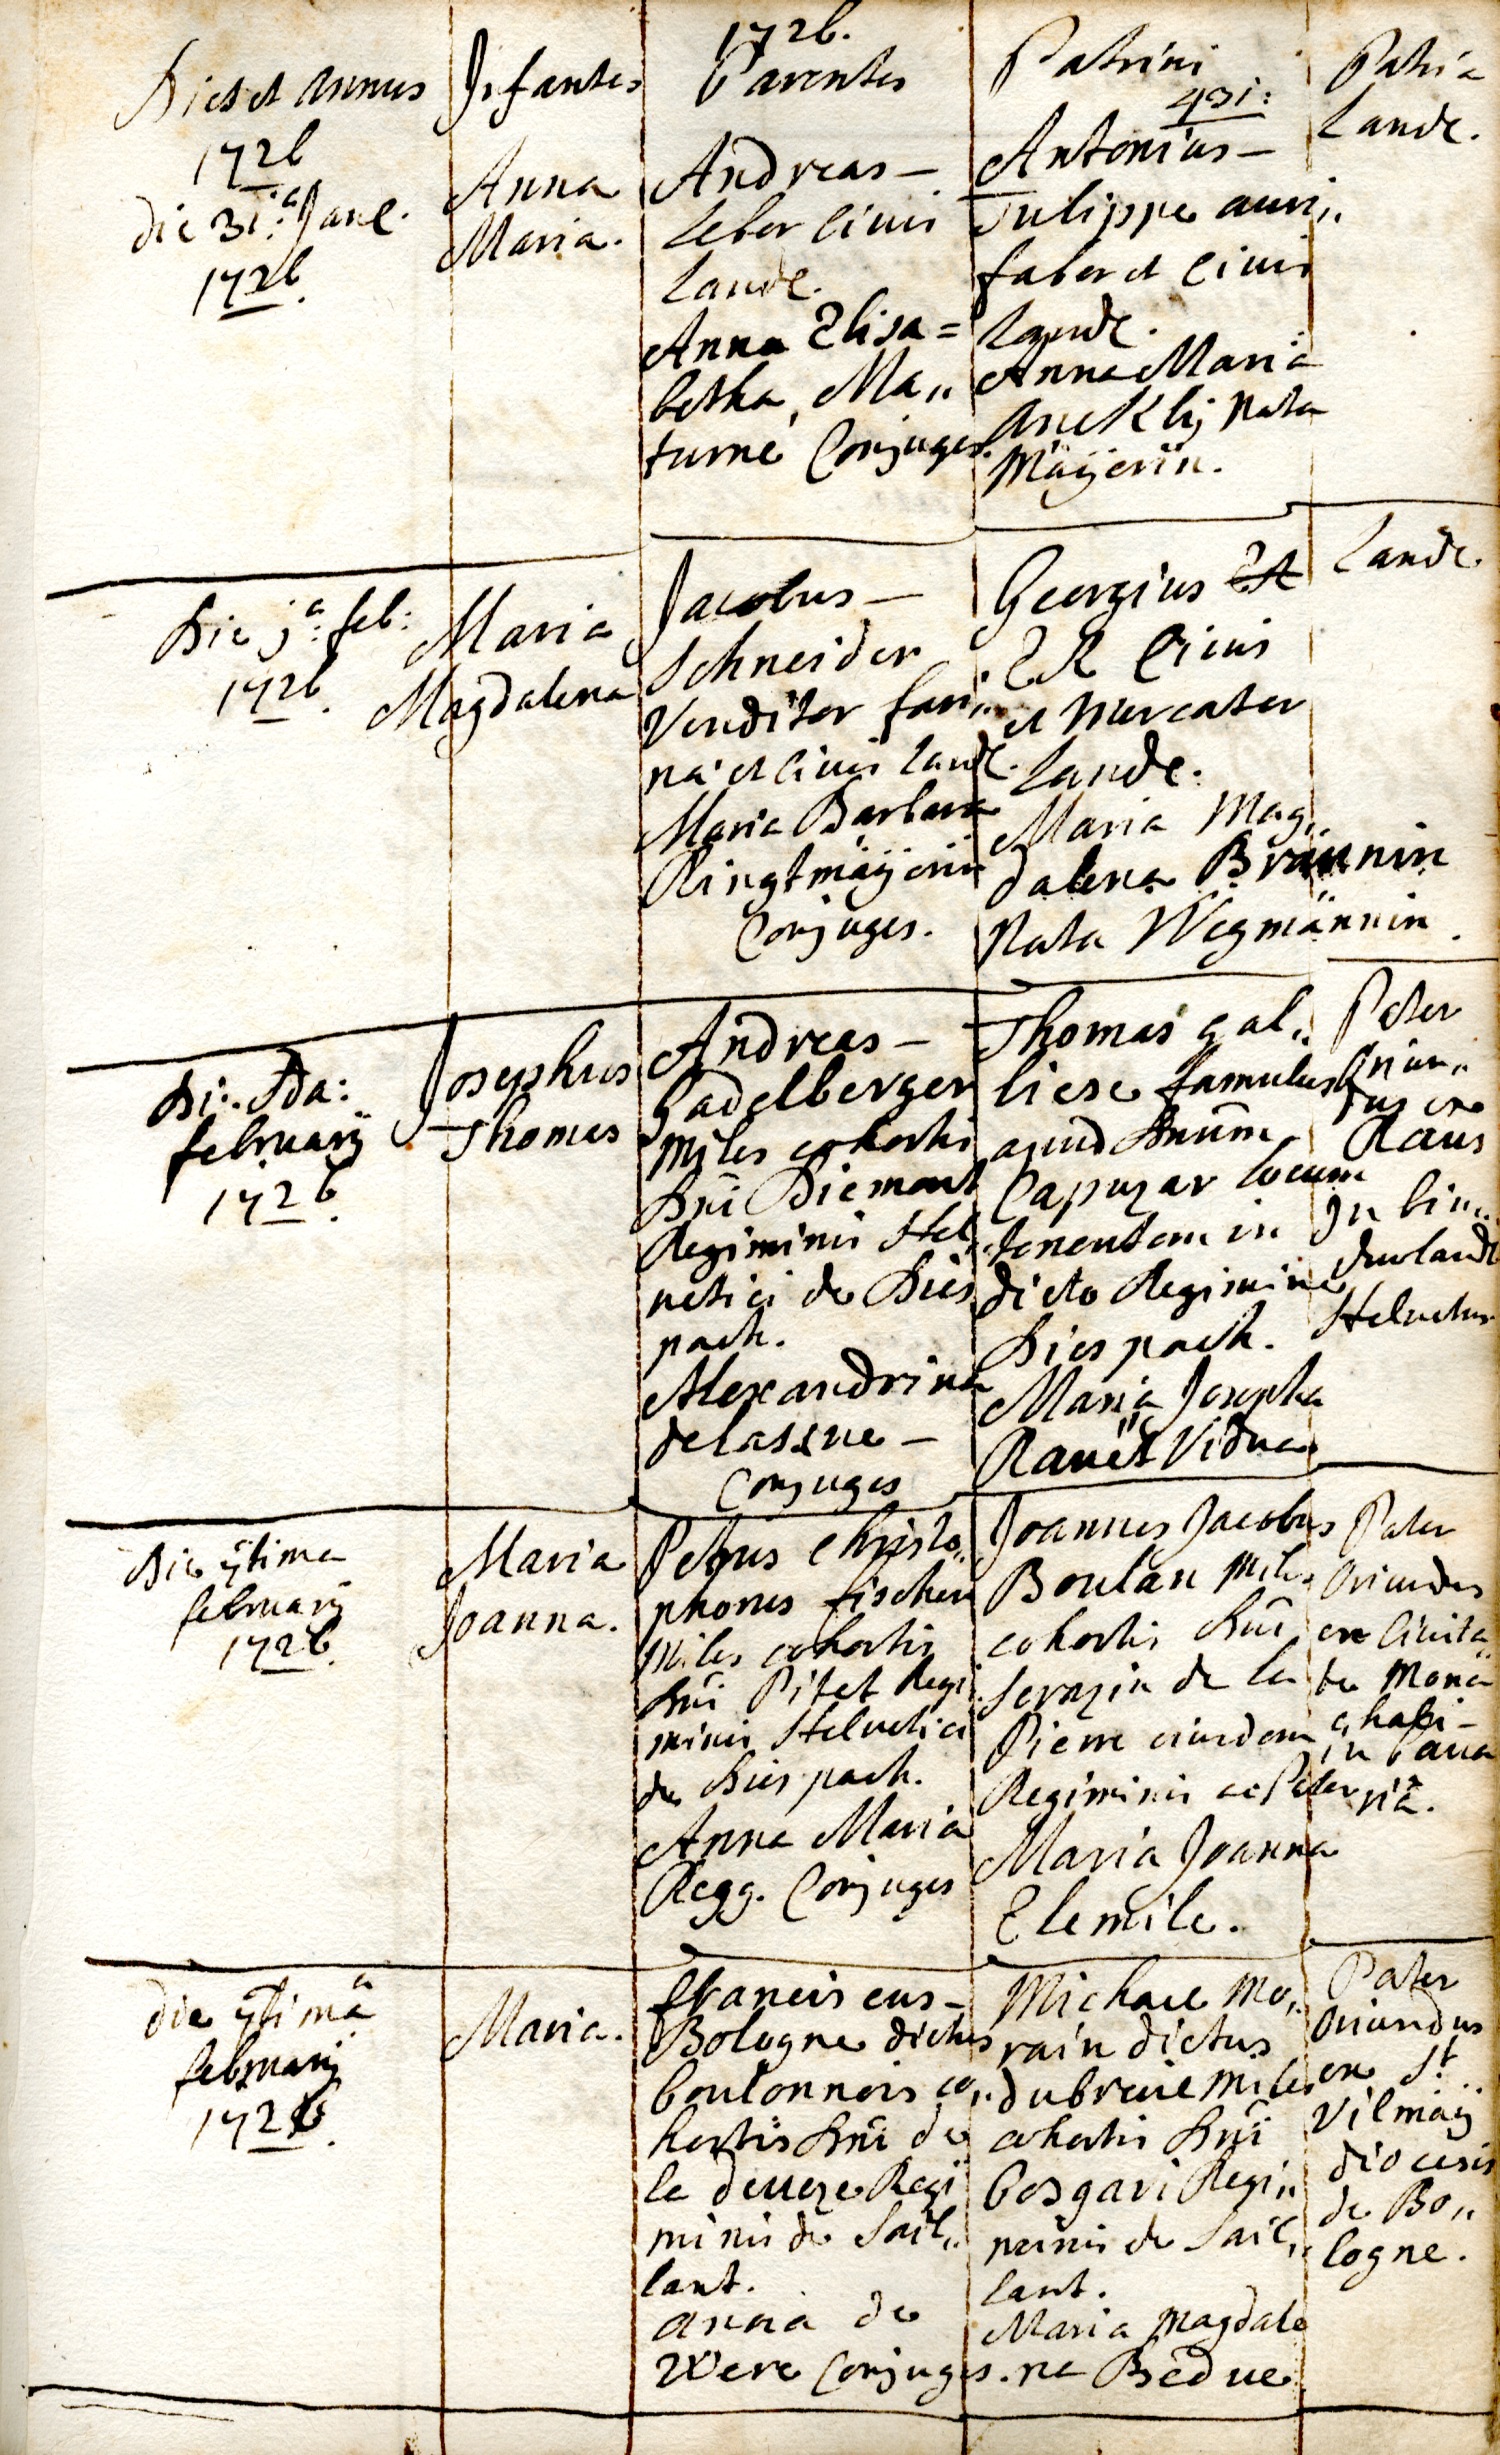 1726.
Dies et Annus
Infantes
Parentes
Patrini
431:
Patria
1726
die 31.a Janr.
1726.
Anna
Maria.
Andreas –
Leber Civis
Landr.
Anna Elisa=
betha, Ma„
turné Conjuges.
Antonius –
Tulippe auri„
faber et Civis
Landr.
Anna Maria
Ancklij nata
Mäÿerin.
Landr.
Die 1.a feb:
1726.
Maria
Magdalena
Jacobus –
Schneider
Venditor fari„
na et civis Landr.
Maria Barbara
Ringtmäÿerin
Conjuges.
Georgius
Ett Civis
et Mercator
Landr.
Maria Mag„
dalena Braunin
Nata Wegmännin.
Landr.
Die 5ta:
februarij
1726.
Josephus
Thomas
Andreas –
Gadelberger
Miles cohortis
Dni Diemant
Regiminis Hel„
vetici de Dies
pach.
Alexandrina
delassue –
Conjuges
Thomas gal„
liese famulus
apud Dnum
Capuzar locum
tenentem in
dicto Regimine
Diespach.
Maria Josepha
Rauët Vidua
Pater
oriun„
dus ex
Raus
in
Helvetus
Die ÿtima
februarij
1726.
Maria
Joanna.
Petrus Christo„
phorus fischer
Miles cohortis
Dni Pitet Regi
minis Helvetici
de Diespach.
Anna Maria
Regg. Conjuges
Joannes Jacobus
Boulan Miles
cohortis Dni
Serazin de la
Pierre eiusdem
Regiminis ac Pater
Maria Joanna
Elemile.
Pater
Oriundus
ex Civita
te Mona
chasi–
in Baua
riâ.
die ÿtimâ
februarij
1726.
Maria.
franciscus –
Bologne dictus
boulonnois co„
hortis Dni de
la deueze Regi
minis de Sail„
lant.
Anna de
Were Conjuges.
Michael Mo„
rain dictus
dubreüil Miles
cohortis Dni
bosgari Regi„
minis de Sail„
lant.
Maria Magdale
na Bédue
Pater
oriundus
ex St
Vilmäÿ
diocesis
de Bo„
logne.